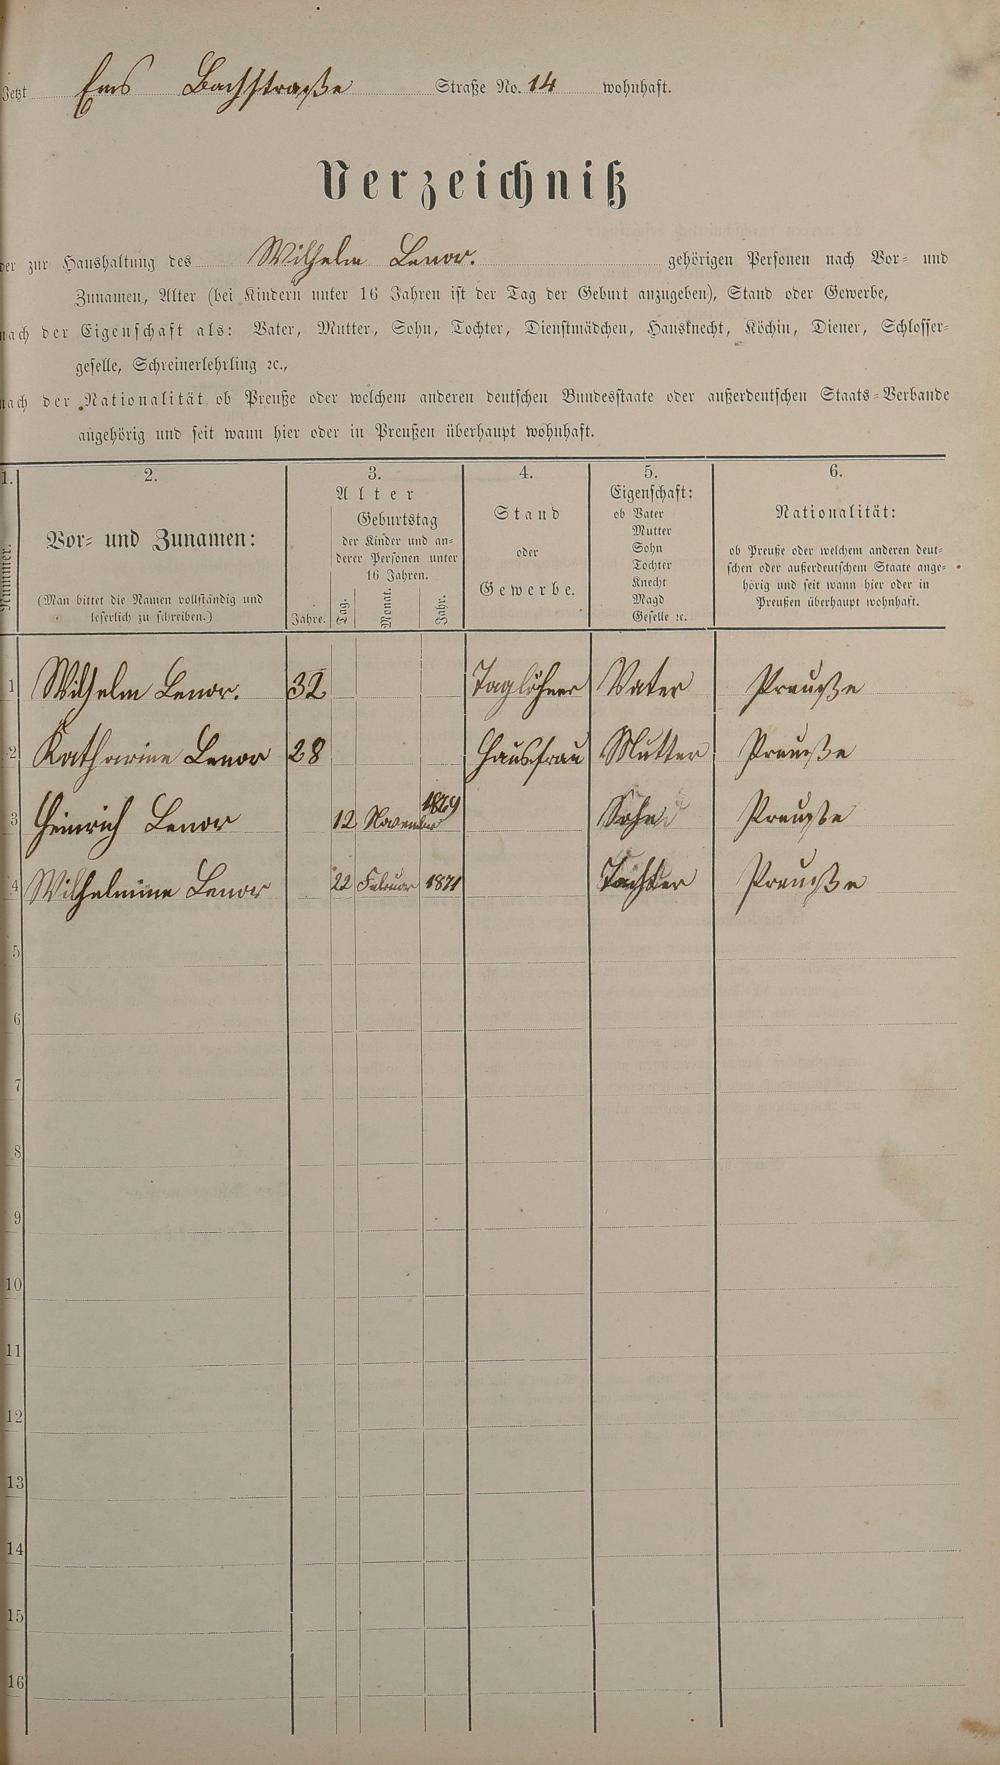 Jetzt Ems Bachstraße Straße No. 14 wohnhaft.
Verzeichniß
der zur Haushaltung des Wilhelm Lenor. gehörigen Personen nach Vor- und
Zunamen, Alter (bei Kindern unter 16 Jahren ist der Tag der Geburt anzugeben), Stand oder Gewerbe,
nach der Eigenschaft als: Vater, Mutter, Sohn, Tochter, Dienstmädchen, Hausknecht, Köchin, Diener, Schlosser-
geselle, Schreinerlehrling ꝛc.,
nach der Nationalität ob Preuße oder welchem anderen deutschen Bundesstaate oder außerdeutschen Staats-Verbande
angehörig und seit wann hier oder in Preußen überhaupt wohnhaft.
1.
Nummer.
2.
Vor- und Zunamen:
(Man bittet die Namen vollständig und
leserlich zu schreiben.)
3.
Alter
Geburtstag
der Kinder und an-
derer Personen unter
16 Jahren.
Jahre. Tag. Monat. Jahr.
4.
Stand
oder
Gewerbe.
5.
Eigenschaft:
ob Vater
Mutter
Sohn
Tochter
Knecht
Magd
Geselle ꝛc.
6.
Nationalität:
ob Preuße oder welchem anderen deut-
schen oder außerdeutschem Staate ange-
hörig und seit wann hier oder in
Preußen überhaupt wohnhaft.
1 Wilhelm Lenor. 32 Taglöhner Vater Preuße
2 Katharine Lenor 28 Hausfrau Mutter Preuße
3 Heinrich Lenor 12 November 1869 Sohn Preuße
4 Wilhelmine Lenor 22 Februar 1871 Tochter Preuße
5
6
7
8
9
10
11
12
13
14
15
16